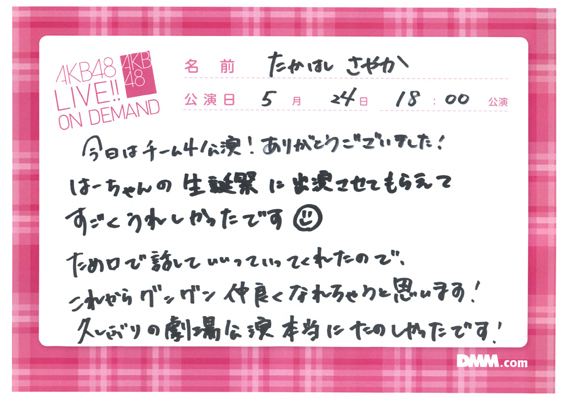 AKB48
LIVE!!
ON DEMAND
AKB
48
名前 たかはし さやか
公演日 5月 24日 18:00 公演
今日はチーム4公演！ありがとうございました！
はーちゃんの生誕祭に出演させてもらえて
すごくうれしかったです☺
ため口で話していいっていってくれたので、
これからグングン仲良くなれちゃうと思います！
久しぶりの劇場公演本当にたのしかったです！
DMM.com